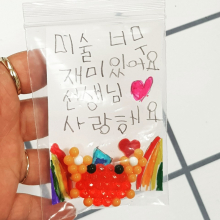 미술 너무
재미있어요
선생님
사랑해요